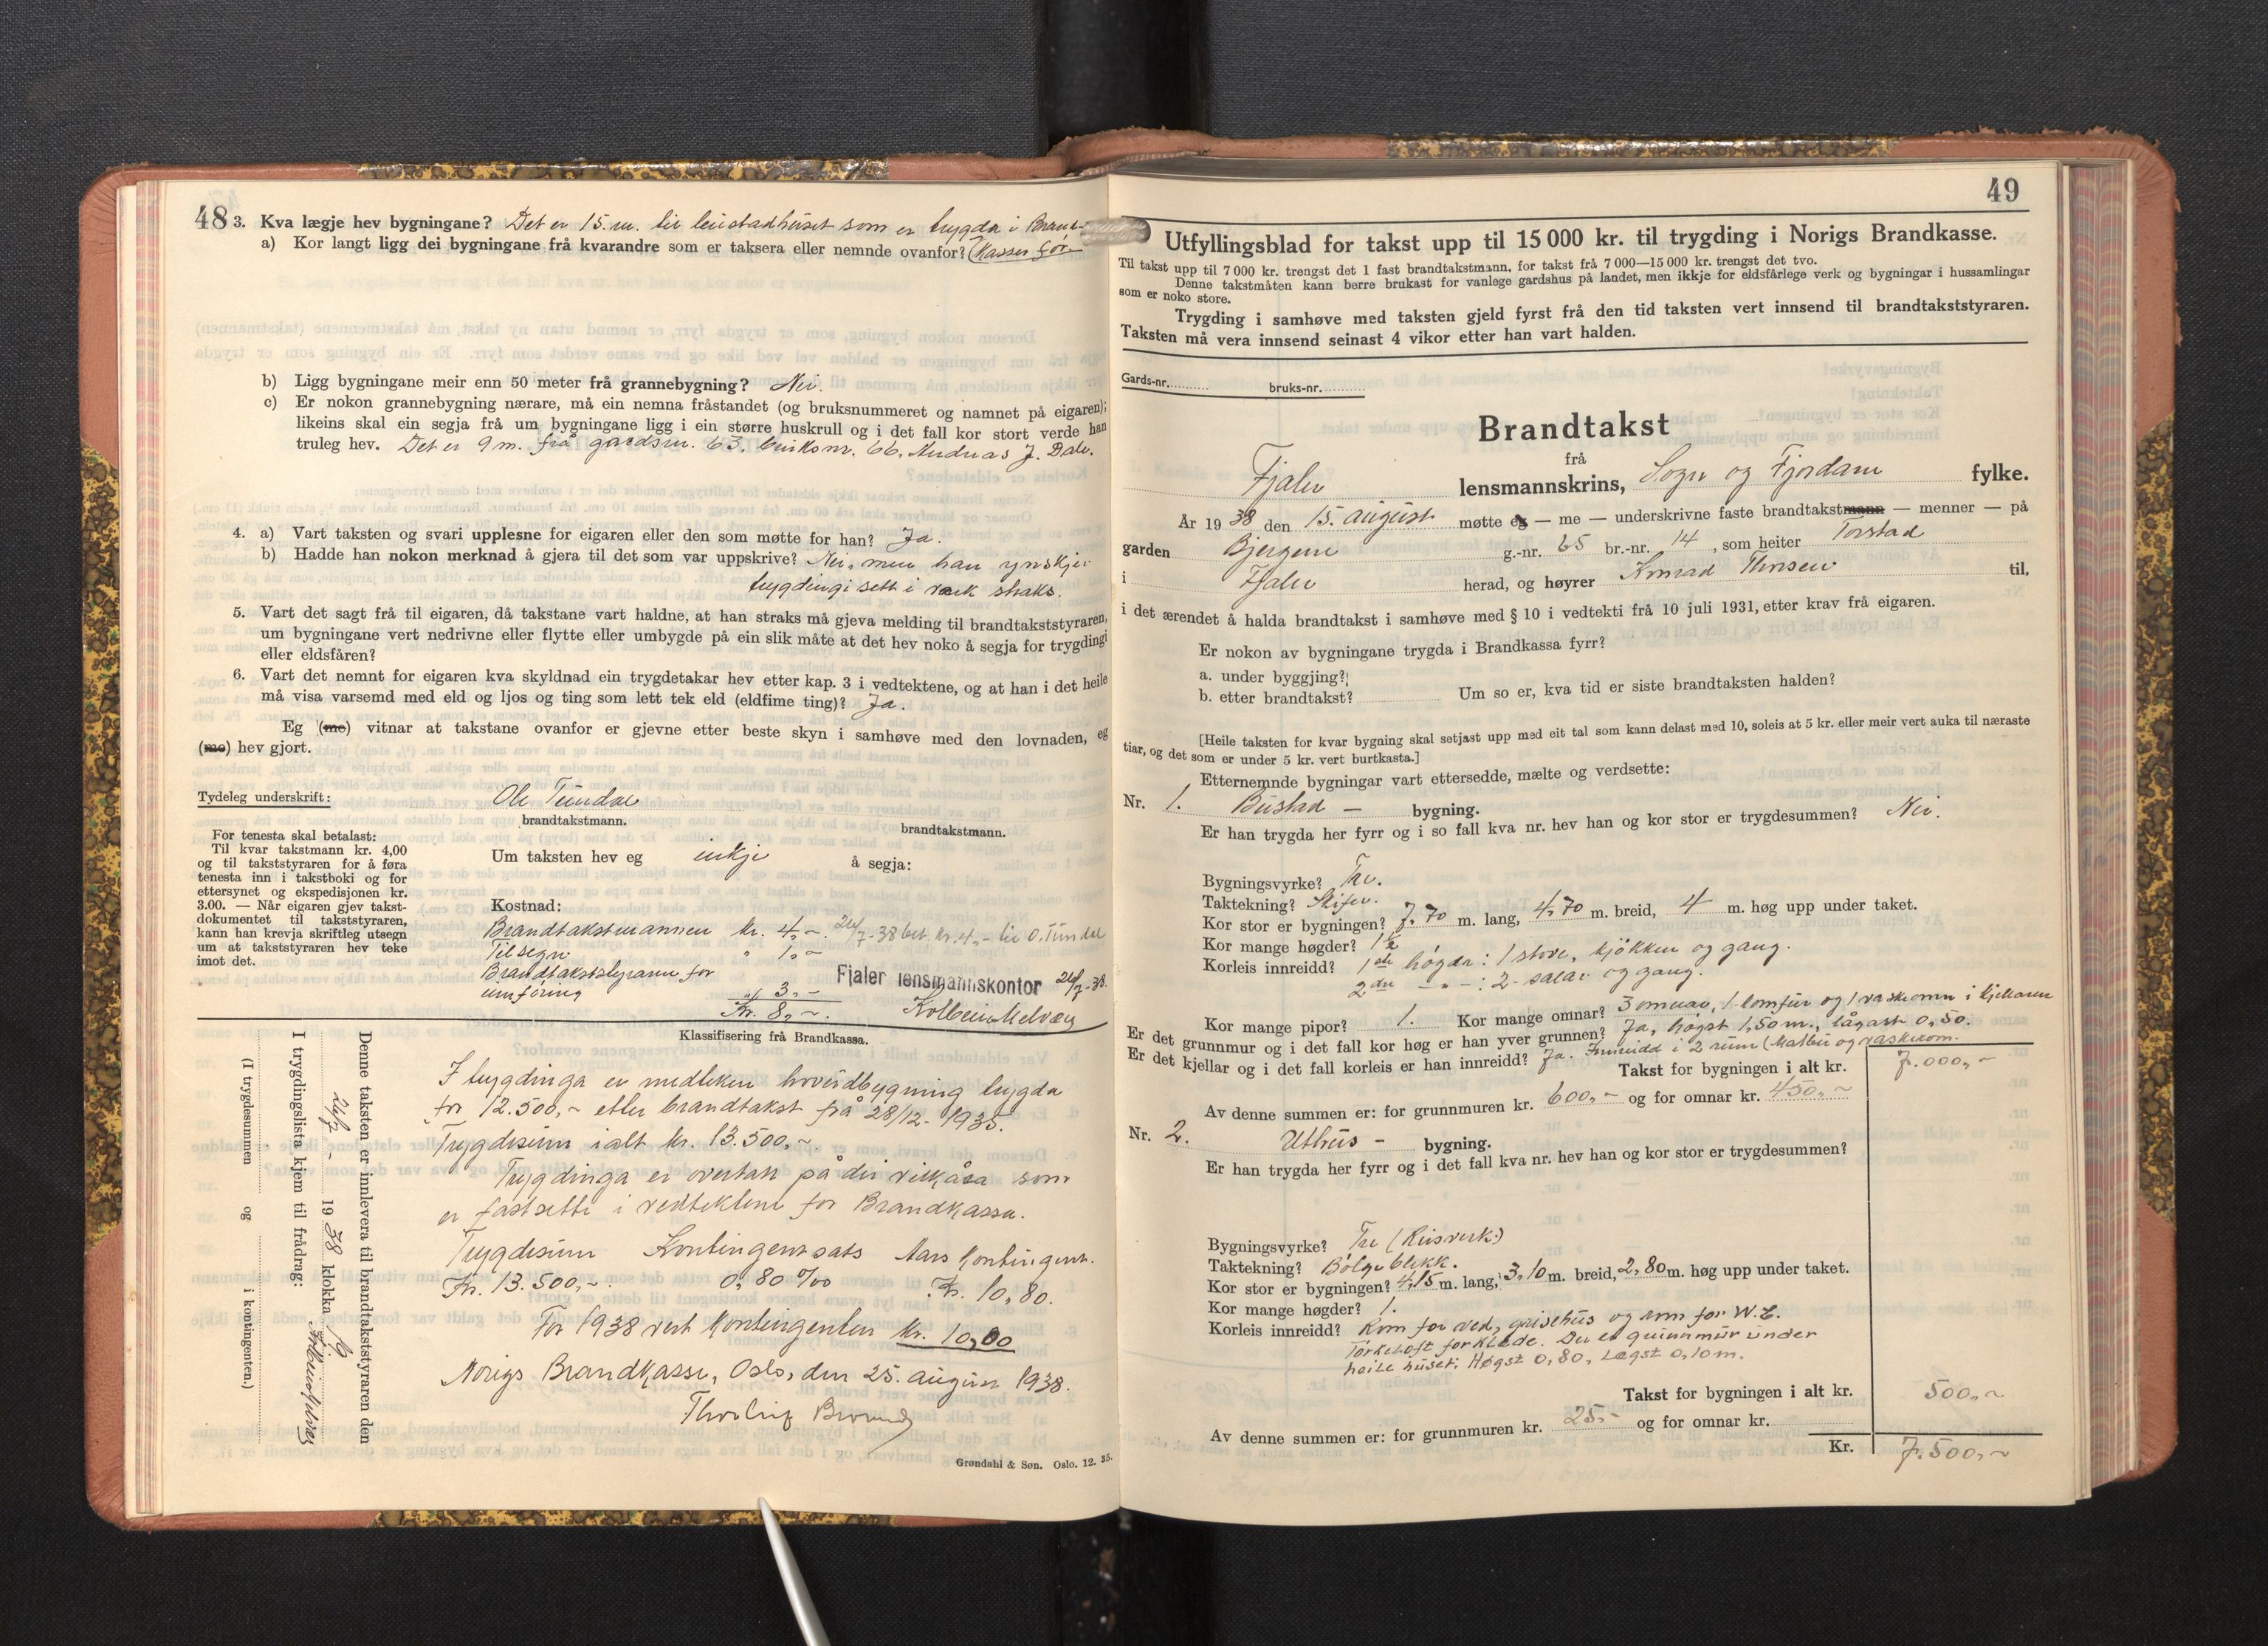 48
3. Kva lægje hev bygningane? Det er 15. m. til bustadhuset som er trygda i Brand-
a) Kor langt ligg dei bygningane frå kvarandre som er taksera eller nemnde ovanfor? (Kassen før
b) Ligg bygningane meir enn 50 meter frå grannebygning? Nei.
c) Er nokon grannebygning nærare, må ein nemna fråstandet (og bruksnummeret og namnet på eigaren);
likeins skal ein segja frå um bygningane ligg i ein større huskrull og i det fall kor stort verde han
truleg hev. Det er 9 m. frå gardsnr. 63, bruksnr. 66, Andreas J. Dale.
4. a) Vart taksten og svari upplesne for eigaren eller den som møtte for han? Ja.
b) Hadde han nokon merknad å gjera til det som var uppskrive? Nei, men han ynskjer
trygdingi sett i verk straks.
5. Vart det sagt frå til eigaren, då takstane vart haldne, at han straks må gjeva melding til brandtakststyraren,
um bygningane vert nedrivne eller flytte eller umbygde på ein slik måte at det hev noko å segja for trygdingi
eller eldsfåren?
6. Vart det nemnt for eigaren kva skyldnad ein trygdetakar hev etter kap. 3 i vedtektene, og at han i det heile
må visa varsemd med eld og ljos og ting som lett tek eld (eldfime ting)? Ja.
Eg (me) vitnar at takstane ovanfor er gjevne etter beste skyn i samhøve med den lovnaden, eg
(me) hev gjort.
Tydeleg underskrift: Ole Tundal
brandtakstmann. brandtakstmann.
For tenesta skal betalast:
Til kvar takstmann kr. 4,00
og til takststyraren for å føra
tenesta inn i takstboki og for
ettersynet og ekspedisjonen kr.
3.00. — Når eigaren gjev takst-
dokumentet til takststyraren,
kann han krevja skriftleg utsegn
um at takststyraren hev teke
imot det.
Um taksten hev eg inkje å segja:
Kostnad:
Brandtakstmannen kr. 4,- 26/7-38 bet. kr. 4,- til O. Tundal
Tilsegn " 1,-
Brandtakststyraren for
innføring " 3,-
Kr. 8,-.
Fjaler lensmannskontor 26/7-38.
Kolbein Melvær
Denne taksten er innlevera til brandtakststyraren den
26/7 - 1938 klokka 19 Kolbein Melvær
I trygdingslista kjem til frådrag:
(I trygdesummen og i kontingenten.)
Klassifisering frå Brandkassa.
I trygdinga er medteken hovudbygning trygda
for 12.500,- etter brandtakst frå 28/12-1935.
Trygdesum ialt kr. 13.500,-.
Trygdinga er overtatt på dei vilkåra som
er fastsette i vedtektene for Brandkassa.
Trygdesum Kontingentsats Aars kontingent.
Kr. 13.500,- 0,80 ‰ Kr. 10,80.
For 1938 vert kontingenten kr. 10,00
Norigs Brandkasse, Oslo, den 25. august 1938.
Grøndahl & Søn. Oslo. 12. 35.
49
Utfyllingsblad for takst upp til 15 000 kr. til trygding i Norigs Brandkasse.
Til takst upp til 7 000 kr. trengst det 1 fast brandtakstmann, for takst frå 7 000—15 000 kr. trengst det tvo.
Denne takstmåten kann berre brukast for vanlege gardshus på landet, men ikkje for eldsfårlege verk og bygningar i hussamlingar
som er noko store.
Trygding i samhøve med taksten gjeld fyrst frå den tid taksten vert innsend til brandtakststyraren.
Taksten må vera innsend seinast 4 vikor etter han vart halden.
Gards-nr. bruks-nr.
Brandtakst
frå
Fjaler lensmannskrins, Sogn og Fjordane fylke.
År 1938 den 15. august møtte eg — me — underskrivne faste brandtakstmann — menner — på
garden Bjergene g.-nr. 65 br.-nr. 14, som heiter Torstad
i Fjaler herad, og høyrer Konrad Thorsen til,
i det ærendet å halda brandtakst i samhøve med § 10 i vedtekti frå 10 juli 1931, etter krav frå eigaren.
Er nokon av bygningane trygda i Brandkassa fyrr?
a. under byggjing?
b. etter brandtakst? Um so er, kva tid er siste brandtaksten halden?
[Heile taksten for kvar bygning skal setjast upp med eit tal som kann delast med 10, soleis at 5 kr. eller meir vert auka til næraste
tiar, og det som er under 5 kr. vert burtkasta.]
Etternemnde bygningar vart ettersedde, mælte og verdsette:
Nr. 1. Bustad - bygning.
Er han trygda her fyrr og i so fall kva nr. hev han og kor stor er trygdesummen? Nei.
Bygningsvyrke? Tre.
Taktekning? Skifer.
Kor stor er bygningen? 7,70 m. lang, 4,70 m. breid, 4 m. høg upp under taket.
Kor mange høgder? 1½
Korleis innreidd? 1ste høgda: 1 stove, kjøkken og gang.
2dre -"-: 2 salar og gang.
Kor mange pipor? 1. Kor mange omnar? 3 omnar, 1 komfur og 1 vaskeomn i kjellaren
Er det grunnmur og i det fall kor høg er han yver grunnen? Ja, høgst 1,50 m., lågast 0,50.
Er det kjellar og i det fall korleis er han innreidd? Ja. Innreidd i 2 rum (Matbu og vaskerom.
Takst for bygningen i alt kr. 7.000,-
Av denne summen er: for grunnmuren kr. 600,- og for omnar kr. 450,-
Nr. 2. Uthus - bygning.
Er han trygda her fyrr og i det fall kva nr. hev han og kor stor er trygdesummen?
Bygningsvyrke? Tre (Reisverk)
Taktekning? Bølgeblekk.
Kor stor er bygningen? 4,15 m. lang, 3,10 m. breid, 2,80 m. høg upp under taket.
Kor mange høgder? 1.
Korleis innreidd? Rom for ved, grisehus og rom for W.C.
Tørkeloft for klæde. Det er grunnmur under
heile huset. Høgst 0,80, Lægst 0,10 m.
Takst for bygningen i alt kr. 500,-
Av denne summen er: for grunnmuren kr. 25,- og for omnar kr.
Kr. 7.500,-